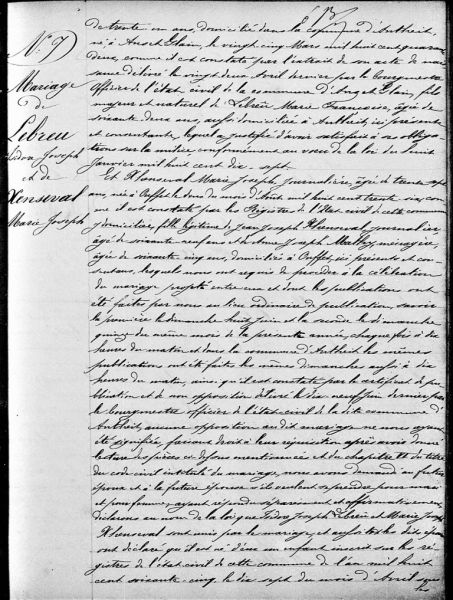 N.° 7
Mariage
de
Lebreu
Isidore Joseph
et de
Xhonseval
Marie Joseph
de trente un ans, domicilié dans la commune d'Antheit,
né à Ans et Glain, le vingt cinq Mars mil huit cent quarante
deux, comme il est constaté par l'extrait de son acte de nais
sance délivré le vingt deux Avril dernier par le bourgmestre
Officier de l'état civil de la commune d'Ans et Glain, fils
majeur et naturel de Lebreu Marie Françoise, âgée de
soixante deux ans, aussi domiciliée à Antheit, ici présente
et consentante, lequel a justifié d'avoir satisfait à ses obliga
tions sur la milice conformément au vœu de la loi du huit
janvier mil huit cent dix-sept.
Et Xhonseval Marie Joseph, journalière, âgée de trente sept
ans, née à le douze du mois d'Août mil huit cent trente six, com
me il est constaté par les Registres de l'état civil de cette commune
y domiciliée, fille légitime de Jean Joseph Xhonseval journalier,
âgé de soixante neuf ans et de Anne Joseph ménagère,
âgée de soixante cinq ans, domiciliés à ici présents et con
sentans, lesquels nous ont requis de procéder à la célébration
du mariage projeté entre eux et dont les publications ont
été faites par nous au lieu ordinaire de publication, savoir
la première le dimanche huit Juin et la seconde le dimanche
quinze du même mois de la présente année, chaque fois à dix
heures du matin et dans la commune d'Antheit les mêmes
publications ont été faites les mêmes dimanches aussi à dix
heures du matin, ainsi qu'il est constaté par le certificat de pu
blication et de non opposition délivré le dix neuf Juin dernier par
le bourgmestre officier de l'état civil de la dite commune d'
Antheit, aucune opposition au dit mariage ne nous ayant
été signifiée, faisant droit à leur réquisition, après avoir donné
lecture des pièces ci-dessus mentionnées et du chapitre VI du titre
du code civil intitulé du mariage, nous avons demandé au futur
époux et à la future épouse s'ils veulent se prendre pour mari
et pour femme; ayant répondu séparément et affirmativement
déclarons au nom de la loi que Isidore Joseph Lebreu et Marie Joseph
Xhonseval sont unis par le mariage, et aussitôt les dits époux
ont déclaré qu'il est né d'eux un enfant inscrit sur les ré
gistres de l'état civil de cette commune de l'an mil huit
cent soixante-cinq, le dix sept du mois d'Avril sous
les